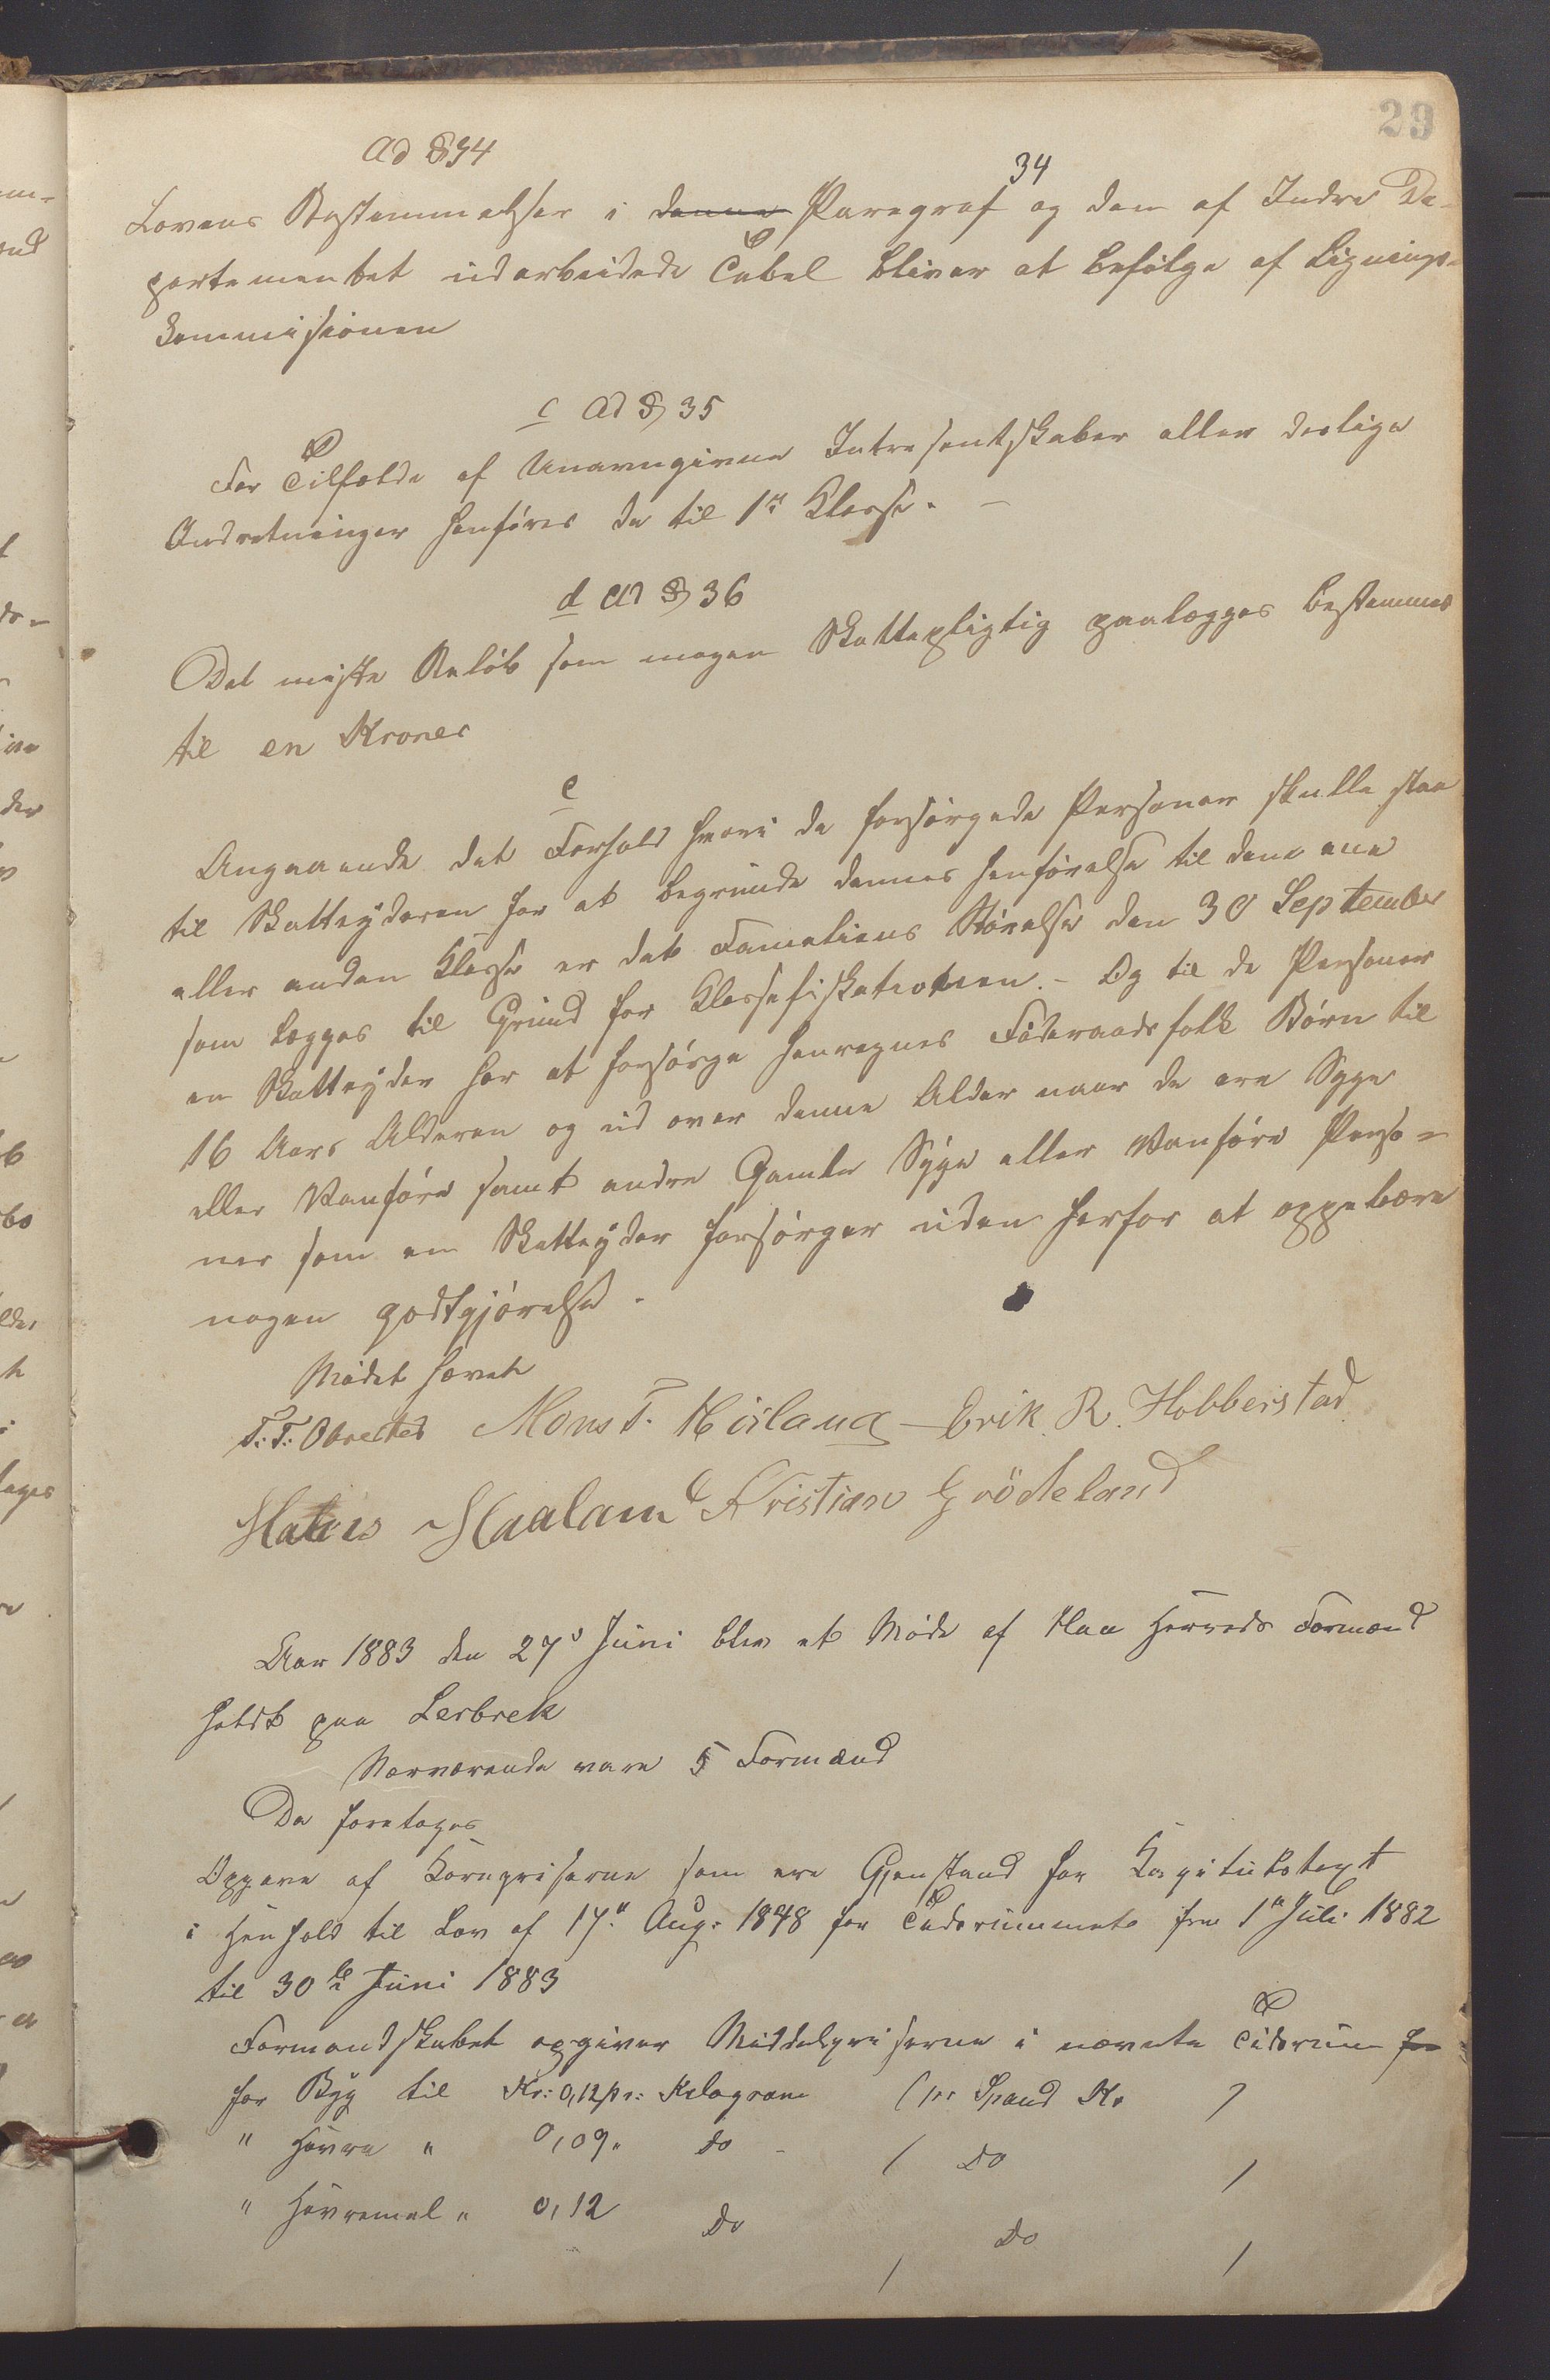 29
Ad § 34
Lovens Bestemmelser i denne Paragraf 34 og den af Indre De-
partementet udarbeidede Tabel bliver at befølge af Lignings-
kommisionen
c Ad § 35
For Tilfælde af Unavngivne Intresentskaber eller deslige
Indretninger henføres de til 1ste Klasse. -
d Ad § 36
Det miste Beløb som nogen Skattepligtig paalægges bestemmes
til en Krone
e
Angaaende det Forhold hvori de forsørgede Personer skulle staa
til Skatteyderen for at begrunde dennes henførelse til den ene
eller anden Klasse er det Fameliens Størelse den 30 September
som lægges til Grund for Klassefikationen. - Og til de Personer
en Skatteyder har at forsørge henregnes Føderaadsfolk Børn til
16 Aars Alderen og ud over denne Alder naar de ere Syge
eller Vanføre samt andre Gamle Syge eller Vanføre Perso-
ner som en Skatteyder forsørger uden herfor at oppebære
nogen godtgjørelse.
Mødet hævet
T. T. Obrestad Mons T. Høiland Erik R. Hobberstad
Haalam Kristian Grödeland
Aar 1883 den 27d Juni blev et Møde af Haa Herreds Formænd
holdt paa Lerbrek
Nærværende vare 5 Formænd
Da foretoges
Opgave af Kornpriserne som ere Gjenstand for Kapitulstaxt
i Henhold til Lov af 17de Aug: 1848 for Tidsrummet fra 1ste Juli 1882
til 30te Juni 1883
Formandskabet opgiver Middelpriserne i nævnte Tidsrum for
for Byg til Kr: 0,12 pr: Kilogram ( pr Spand Kr )
" Havre " 0,09 " do - ( do )
" Havremel " 0,12 do ( do )